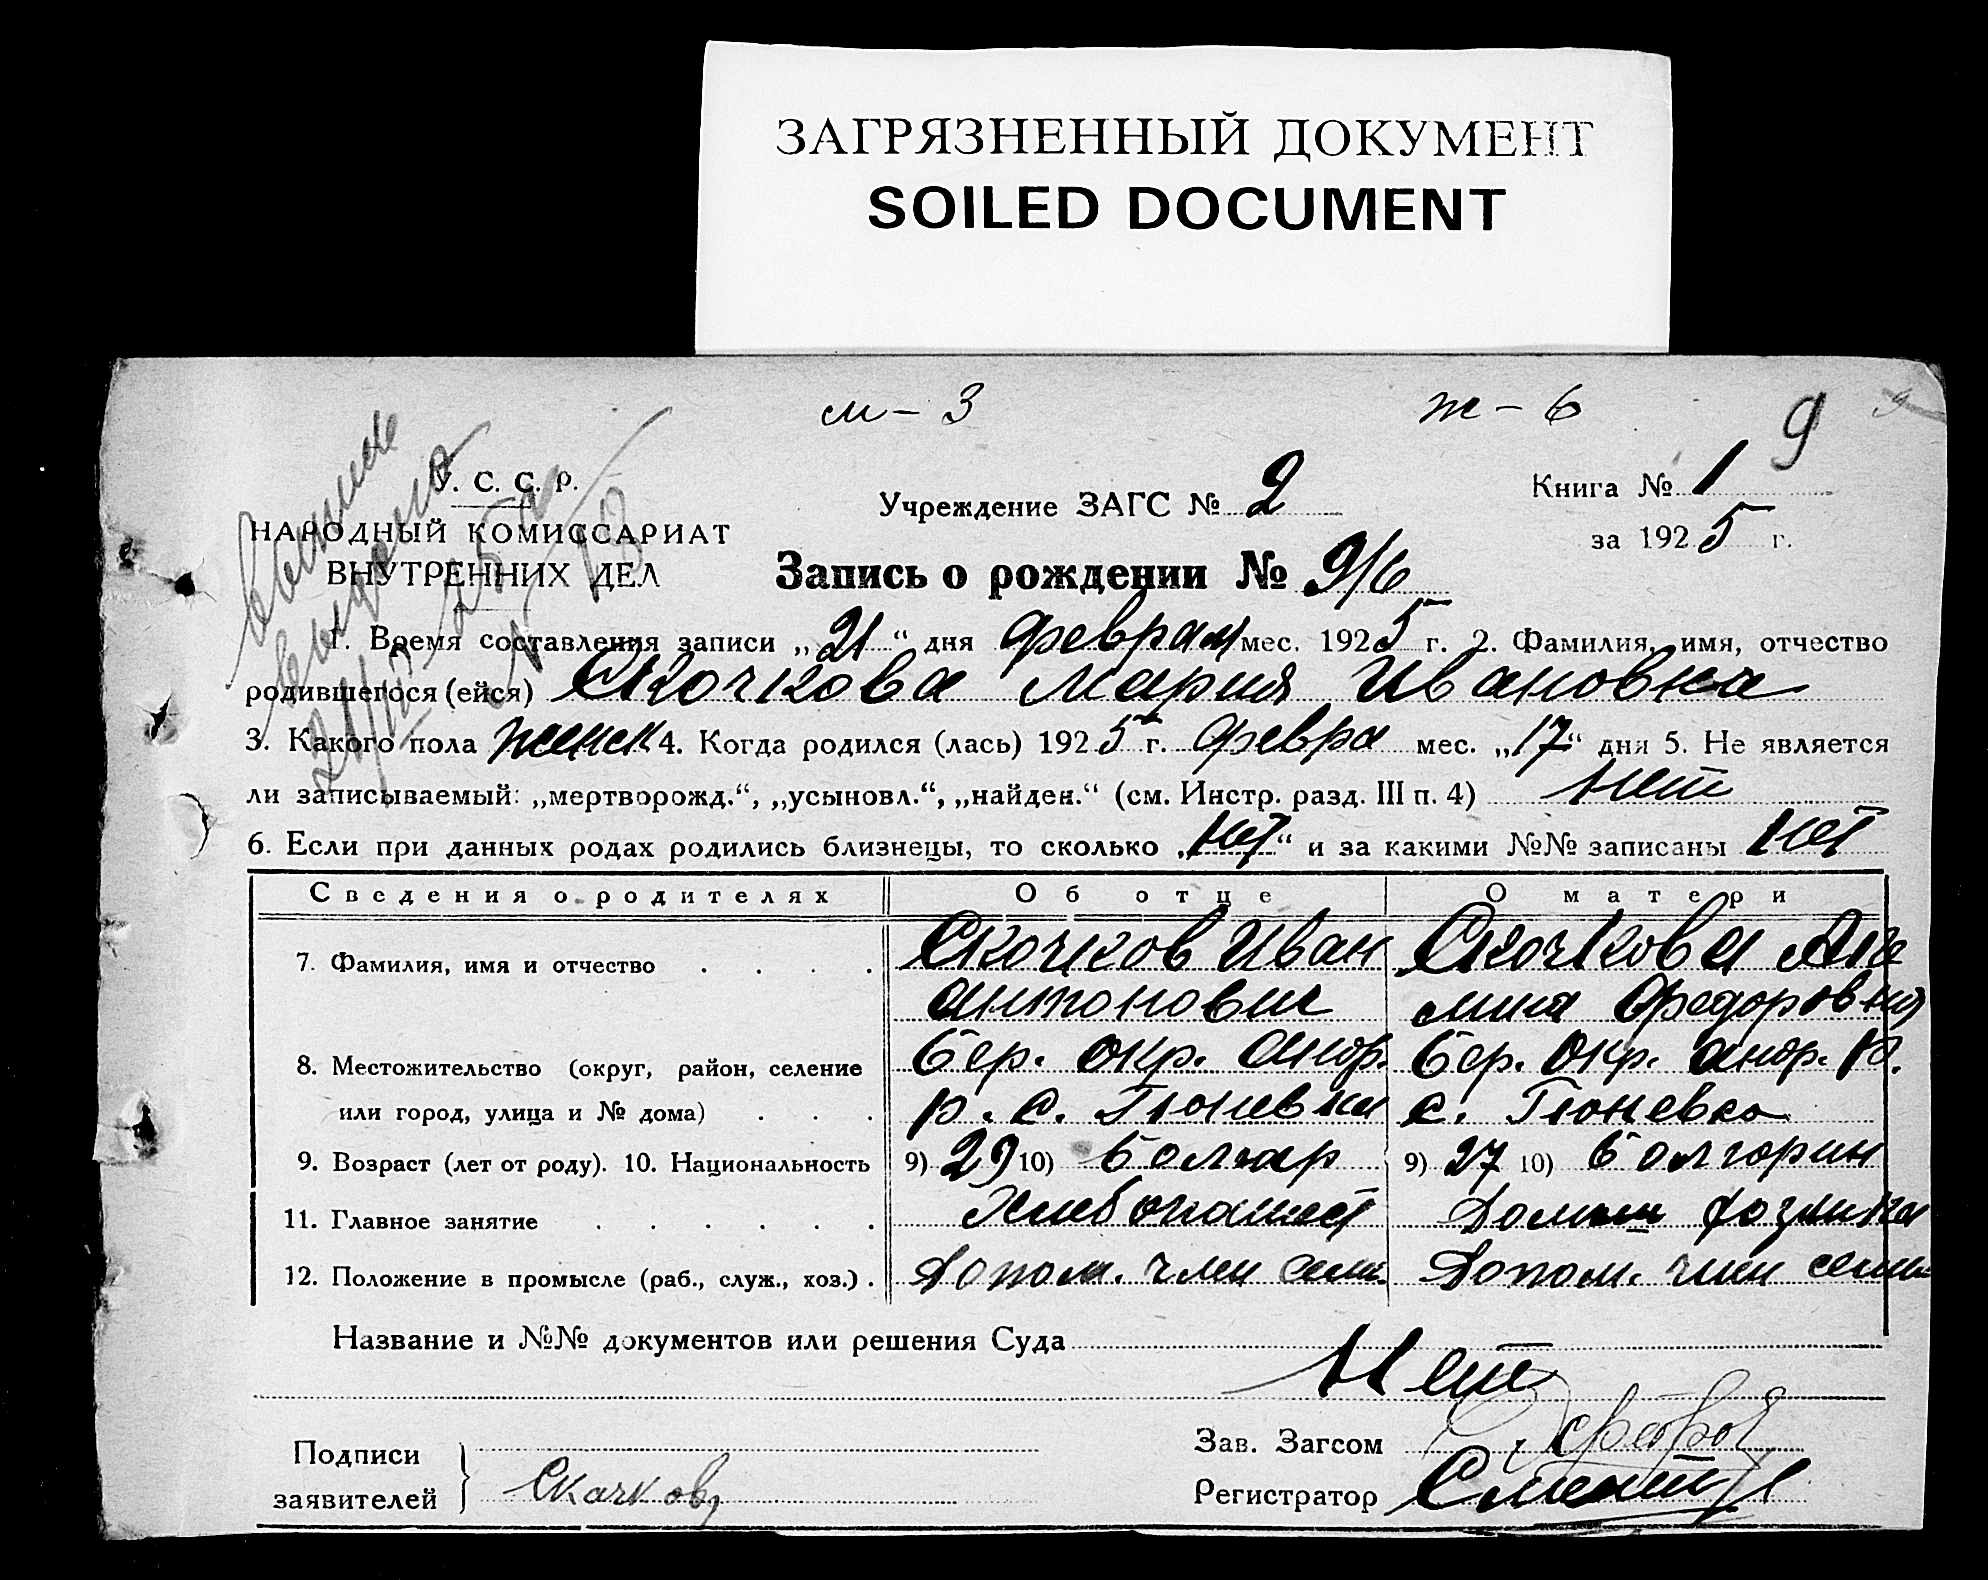 ЗАГРЯЗНЕННЫЙ ДОКУМЕНТ
SOILED DOCUMENT
м – 3 ж – 6 9
У. С. С. Р.
НАРОДНЫЙ КОМИССАРИАТ
ВНУТРЕННИХ ДЕЛ
Учреждение ЗАГС № 2
Книга № 1
за 1925 г.
Запись о рождении № 9/6
1. Время составления записи „21“ дня февраля мес. 1925 г. 2. Фамилия, имя, отчество
родившегося (ейся) Скочкова Мария Ивановна
3. Какого пола женск 4. Когда родился (лась) 1925 г. февра мес. „17“ дня 5. Не является
ли записываемый: „мертворожд.“, „усыновл.“, „найден.“ (см. Инстр. разд. III п. 4) нет
6. Если при данных родах родились близнецы, то сколько „нет“ и за какими №№ записаны нет
Сведения о родителях Об отце О матери
7. Фамилия, имя и отчество . . . . Скочков Иван Скочкова
Антонович Федоровна
8. Местожительство (округ, район, селение Бер. окр. Андр. Бер. Окр. Андр. р.
или город, улица и № дома) . . . р. с. Гюневка с. Гюневка
9. Возраст (лет от роду). 10. Национальность 9) 29 10) болгар 9) 27 10) болгорин
11. Главное занятие . . . . . . Хлебопашест Домаш хозяйка
12. Положение в промысле (раб., служ., хоз.) . Допом. член сем. Допом. член семьи
Название и №№ документов или решения Суда
Нет
Подписи
заявителей
Скачков
Зав. Загсом
Регистратор